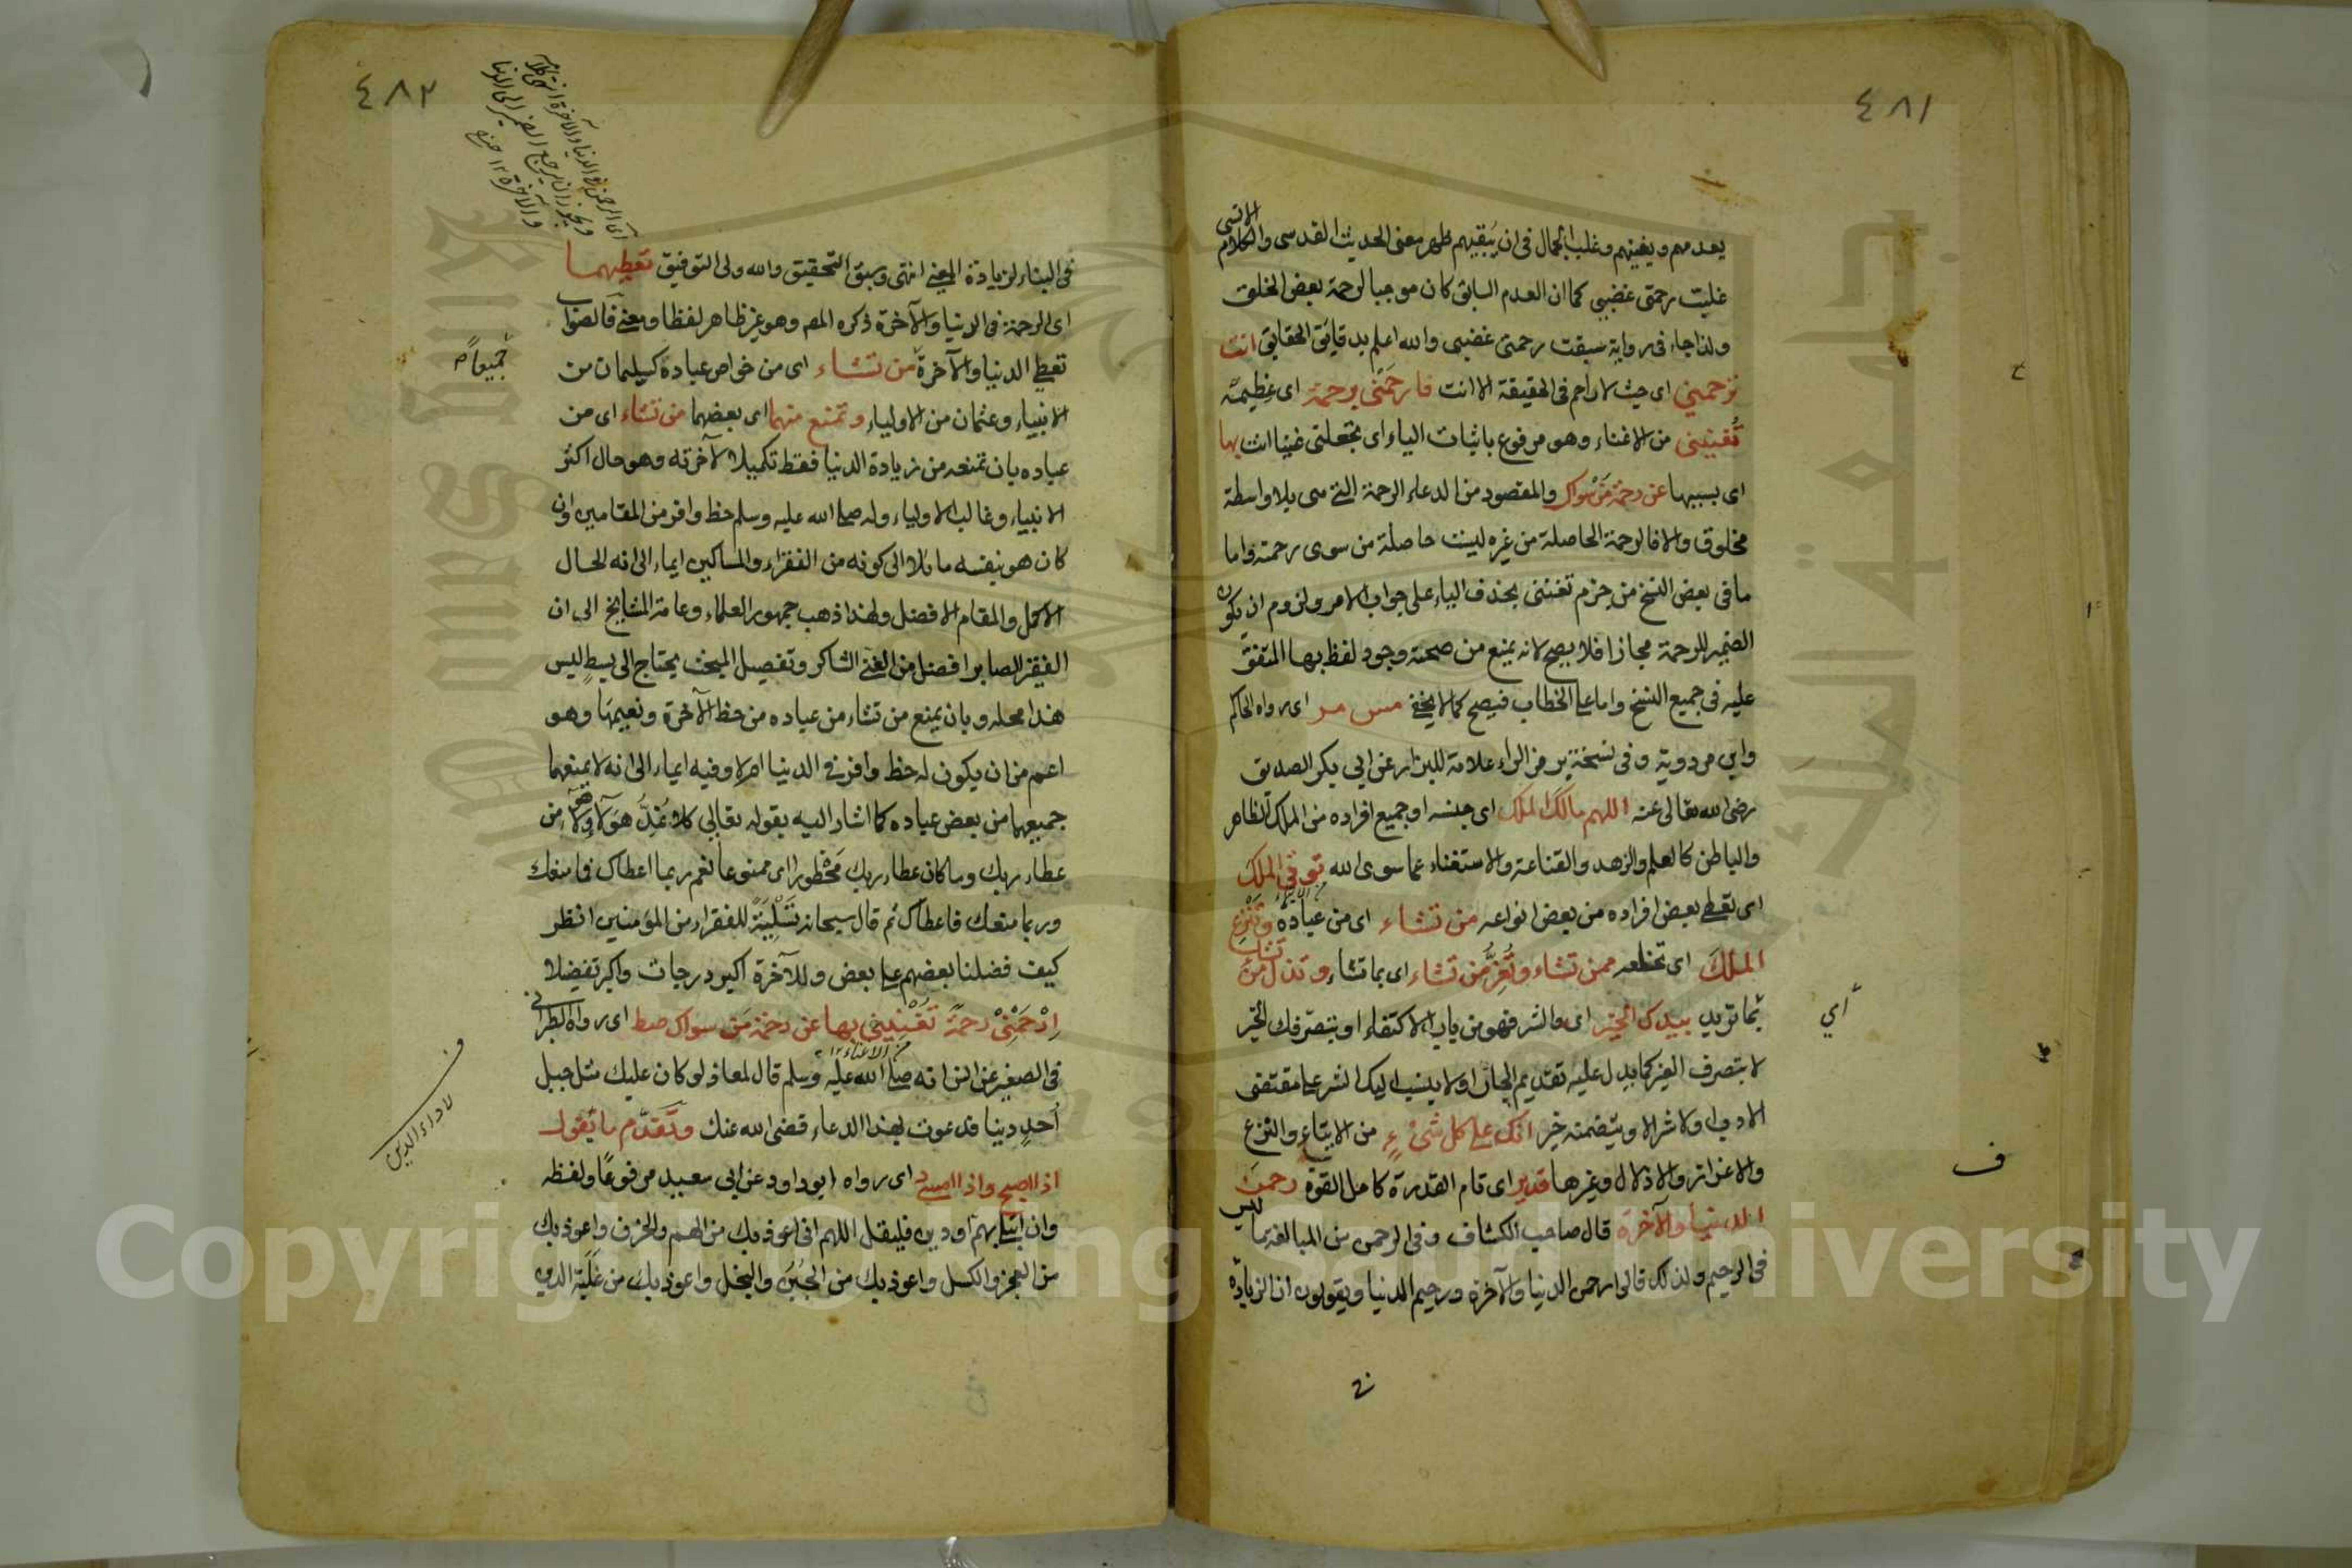 ٤٨١
يعدمهم ويفنيهم وغلب الجمال في ان يبقيهم ظهر معنى الحديث القدسي والكلام الانسي
غلبت رحمتي غضبي كما ان العدم السابق كان موجبا لرحمة بعض الخلق
ولذا جاء في رواية سبقت رحمتي غضبي والله اعلم بدقايق الحقايق انت
ترحمني اى حيث لا راحم في الحقيقة الا انت فارحمني برحمة اى عظيمة
تُغنيني من الاغناء وهو مرفوع باثبات الياء اى تجعلني غنيا انت بها
اى بسببها عن رحمة مَنْ سواك والمقصود من الدعاء الرحمة التي هي بلا واسطة
مخلوق والا فالرحمة الحاصلة من غيره ليست حاصلة من سوى رحمته واما
ما في بعض النسخ من جزم تغنني بحذف الياء على جواب الامر ولزوم ان يكون
الضمير للرحمة مجازا فلا يصح لانه يمنع من صحته وجود لفظ بها المتفق
عليه في جميع النسخ واما على الخطاب فيصح كما لا يخفى مس مر اى رواه الحاكم
وابن مردوية وفي نسخة برمز الراء علامة للبزار عن ابي بكر الصديق
رضي الله تعالى عنه اللهم مالك الملك اى جنسه او جميع افراده من الملك الظاهر
والباطن كالعلم والزهد والقناعة والاستغناء عما سوى الله توتي الملك
اى تعطي بعض افراده من بعض انواعه من تشاء اى من عباده وتَنْزِع
الملكَ اى تخلعه ممن تشاء وتُعِزُّ من تشاء اى بما تشاء وتذل من تشاء
بما تريد بيدك الخير اى والشر فهو من باب الاكتفاء او بتصرفك الخير
اي
لا بتصرف الغير كما يدل عليه تقديم الجار او لا ينسب اليك الشر على مقتضى
الادب او لا شر الا ويتضمنه خير انك على كل شيء من الايتاء والنزع
ف
والاعزاز والاذلال وغيرها قدير اى تام القدرة كامل القوة رحمن
الدنيا والآخرة قال صاحب الكشاف وفي الرحمن من المبالغة ما ليس
في الرحيم ولذلك قالوا رحمن الدنيا والآخرة ورحيم الدنيا ويقولون ان الزيادة
٤٨٢
اى الرحمن في الدنيا والآخرة انتهى
ويجوز ان يرجع الضمير الى الدنيا
والآخرة ١٢
في البناء لزيادة المعنى انتهى وسبق التحقيق والله ولى التوفيق تعطيهما
اى الرحمة في الدنيا والآخرة ذكره المص وهو غير ظاهر لفظا ومعنى فالصواب
تعطي الدنيا والآخرة من تشاء اى من خواص عباده كسليمان من
جميعا ص
الانبياء وعثمان من الاولياء وتمنع منهما اى بعضهما من تشاء اى من
عباده بان تمنعه من زيادة الدنيا فقط تكميلا لآخرته وهو حال اكثر
الانبياء وغالب الاولياء وله صلى الله عليه وسلم حظ وافر من المقامين وان
كان هو بنفسه مائلا الى كونه من الفقراء والمساكين ايماء الى انه الحال
الاكمل والمقام الافضل ولهذا ذهب جمهور العلماء وعامة المشايخ الى ان
الفقير الصابر افضل من الغني الشاكر وتفصيل المبحث يحتاج الى بسطٍ ليس
هذا محله وبان يمنع من تشاء من عباده من حظ الآخرة ونعيمها وهو
اعم من ان يكون له حظ وافر في الدنيا ام لا وفيه ايماء الى انه لا يمنعهما
جميعهما من بعض عباده كما اشار اليه بقوله تعالى كلا نُمِدُّ هؤلاء وهؤلاء من
عطاء ربك وما كان عطاء ربك مَحْظورا اى ممنوعا نعم ربما اعطاك فامنعك
وربما منعك فاعطاك ثم قال سبحانه تَسْلِيَةً للفقراء من المؤمنين انظر
كيف فضلنا بعضهم على بعض وللآخرة اكبر درجات واكبر تفضيلا
اِرْحَمْنِيْ رحمةً تُغْنِيني بها عن رحمة مَن سواك صط اى رواه الطبراني
من الاغناء ١٢
في الصغير عن انس انه صلى الله عليه وسلم قال لمعاذ لو كان عليك مثل جبل
أحدٍ دينا فدعوت بهذا الدعاء قضى الله عنك وتَقَدَّم ما يقول
ف
لاداء الدين
اذا اصبح واذا امسى د اى رواه ابو داود عن ابي سعيد مرفوعًا ولفظه
وان ابتلى بهمّ او دين فليقل اللهم اني اعوذ بك من الهم والحزن واعوذ بك
من العجز والكسل واعوذ بك من الجُبن والبخل واعوذ بك من غلبة الدين
Copyright © King Saud University